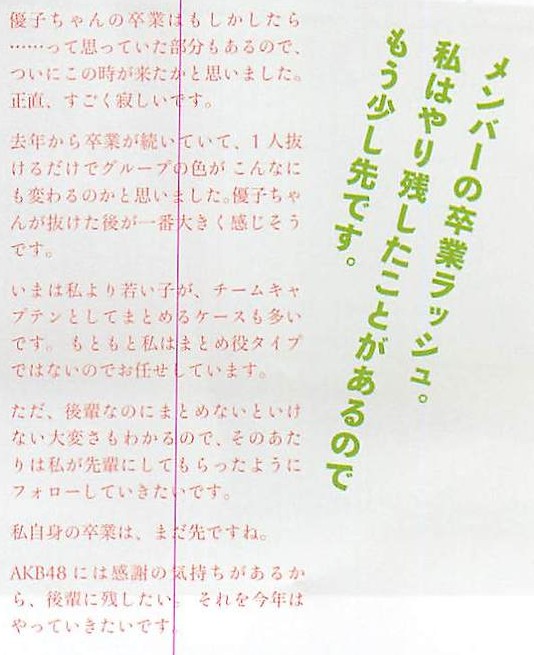 メンバーの卒業ラッシュ。
私はやり残したことがあるので
もう少し先です。
優子ちゃんの卒業はもしかしたら
……って思っていた部分もあるので、
ついにこの時が来たかと思いました。
正直、すごく寂しいです。
去年から卒業が続いていて、1人抜
けるだけでグループの色が こんなに
も変わるのかと思いました。優子ちゃ
んが抜けた後が一番大きく感じそう
です。
いまは私より若い子が、チームキャ
プテンとしてまとめるケースも多い
です。 もともと私はまとめ役タイプ
ではないのでお任せしています。
ただ、後輩なのにまとめないといけ
ない大変さもわかるので、そのあた
りは私が先輩にしてもらったように
フォローしていきたいです。
私自身の卒業は、まだ先ですね。
AKB48には感謝の気持ちがあるか
ら、後輩に残したい。 それを今年は
やっていきたいです。